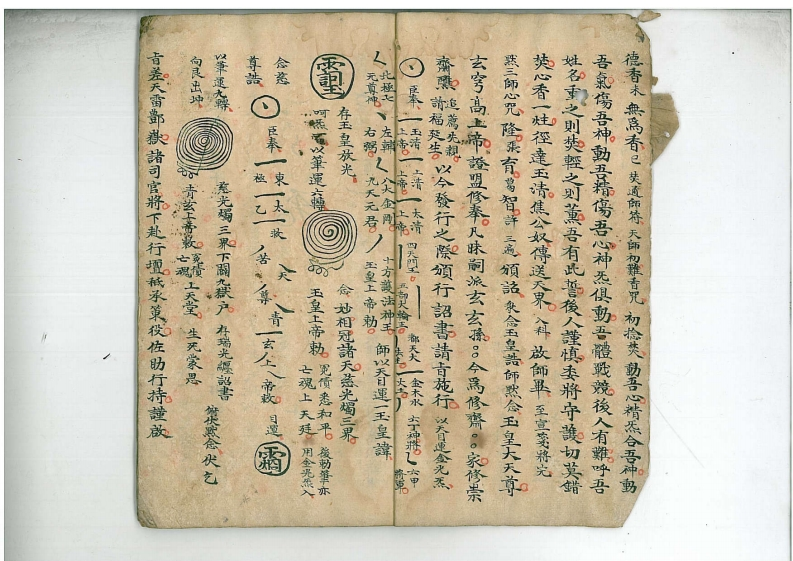 德香未 無為香已 焚通師符 天師初難香咒 初捻焚 動吾心精炁合吾神動
吾氣傷吾神動吾精傷吾心神炁俱動吾體戰競後人有難呼吾
姓名重之則焚輕之則薰吾有此誓後人謹慎委將守護切莫錯
焚心香一炷徑達玉清焦公奴傳送天界 入科 啟師畢 至宣箋將完
黙三師心咒 隆張 育葛 智許 三遍 頒詔 衆念玉皇誥師黙念玉皇大天尊
玄穹高上帝 證盟修奉凡昧嗣派玄玄孫○○今為修齋○○家修崇
齋醮 追薦先親 請福延生 以今發行之際頒行 詔書請旨施行 以天目運金光炁
臣奉 玉清上帝 上清上帝 太清上帝 四天門王 都天大 金木水火土 六丁神將 六甲
北極七元尊神 左輔右弼 八大金剛 九天元君 十方護法神王 玉皇上帝勅 師以天目運一玉皇諱
存玉皇放光 呵炁 以筆運六轉 念 妙相冠諸天慈光燭三界
玉皇上帝勅 冤債悉和平 亡魂上天廷 後勅筆亦用金光炁入
念慈尊誥 臣奉 東極 太乙 救苦 天尊 青玄上帝敕 目運
以筆運九轉 向艮出坤 慈光燭三界下開九獄户 存瑞光纏詔書
青玄上帝敕 冤債上天堂 亡魂 生死蒙恩 俯伏黙念 伏乞
旨差天雷酆嶽諸司官將下赴行壇祗承策役佐助行持謹啟